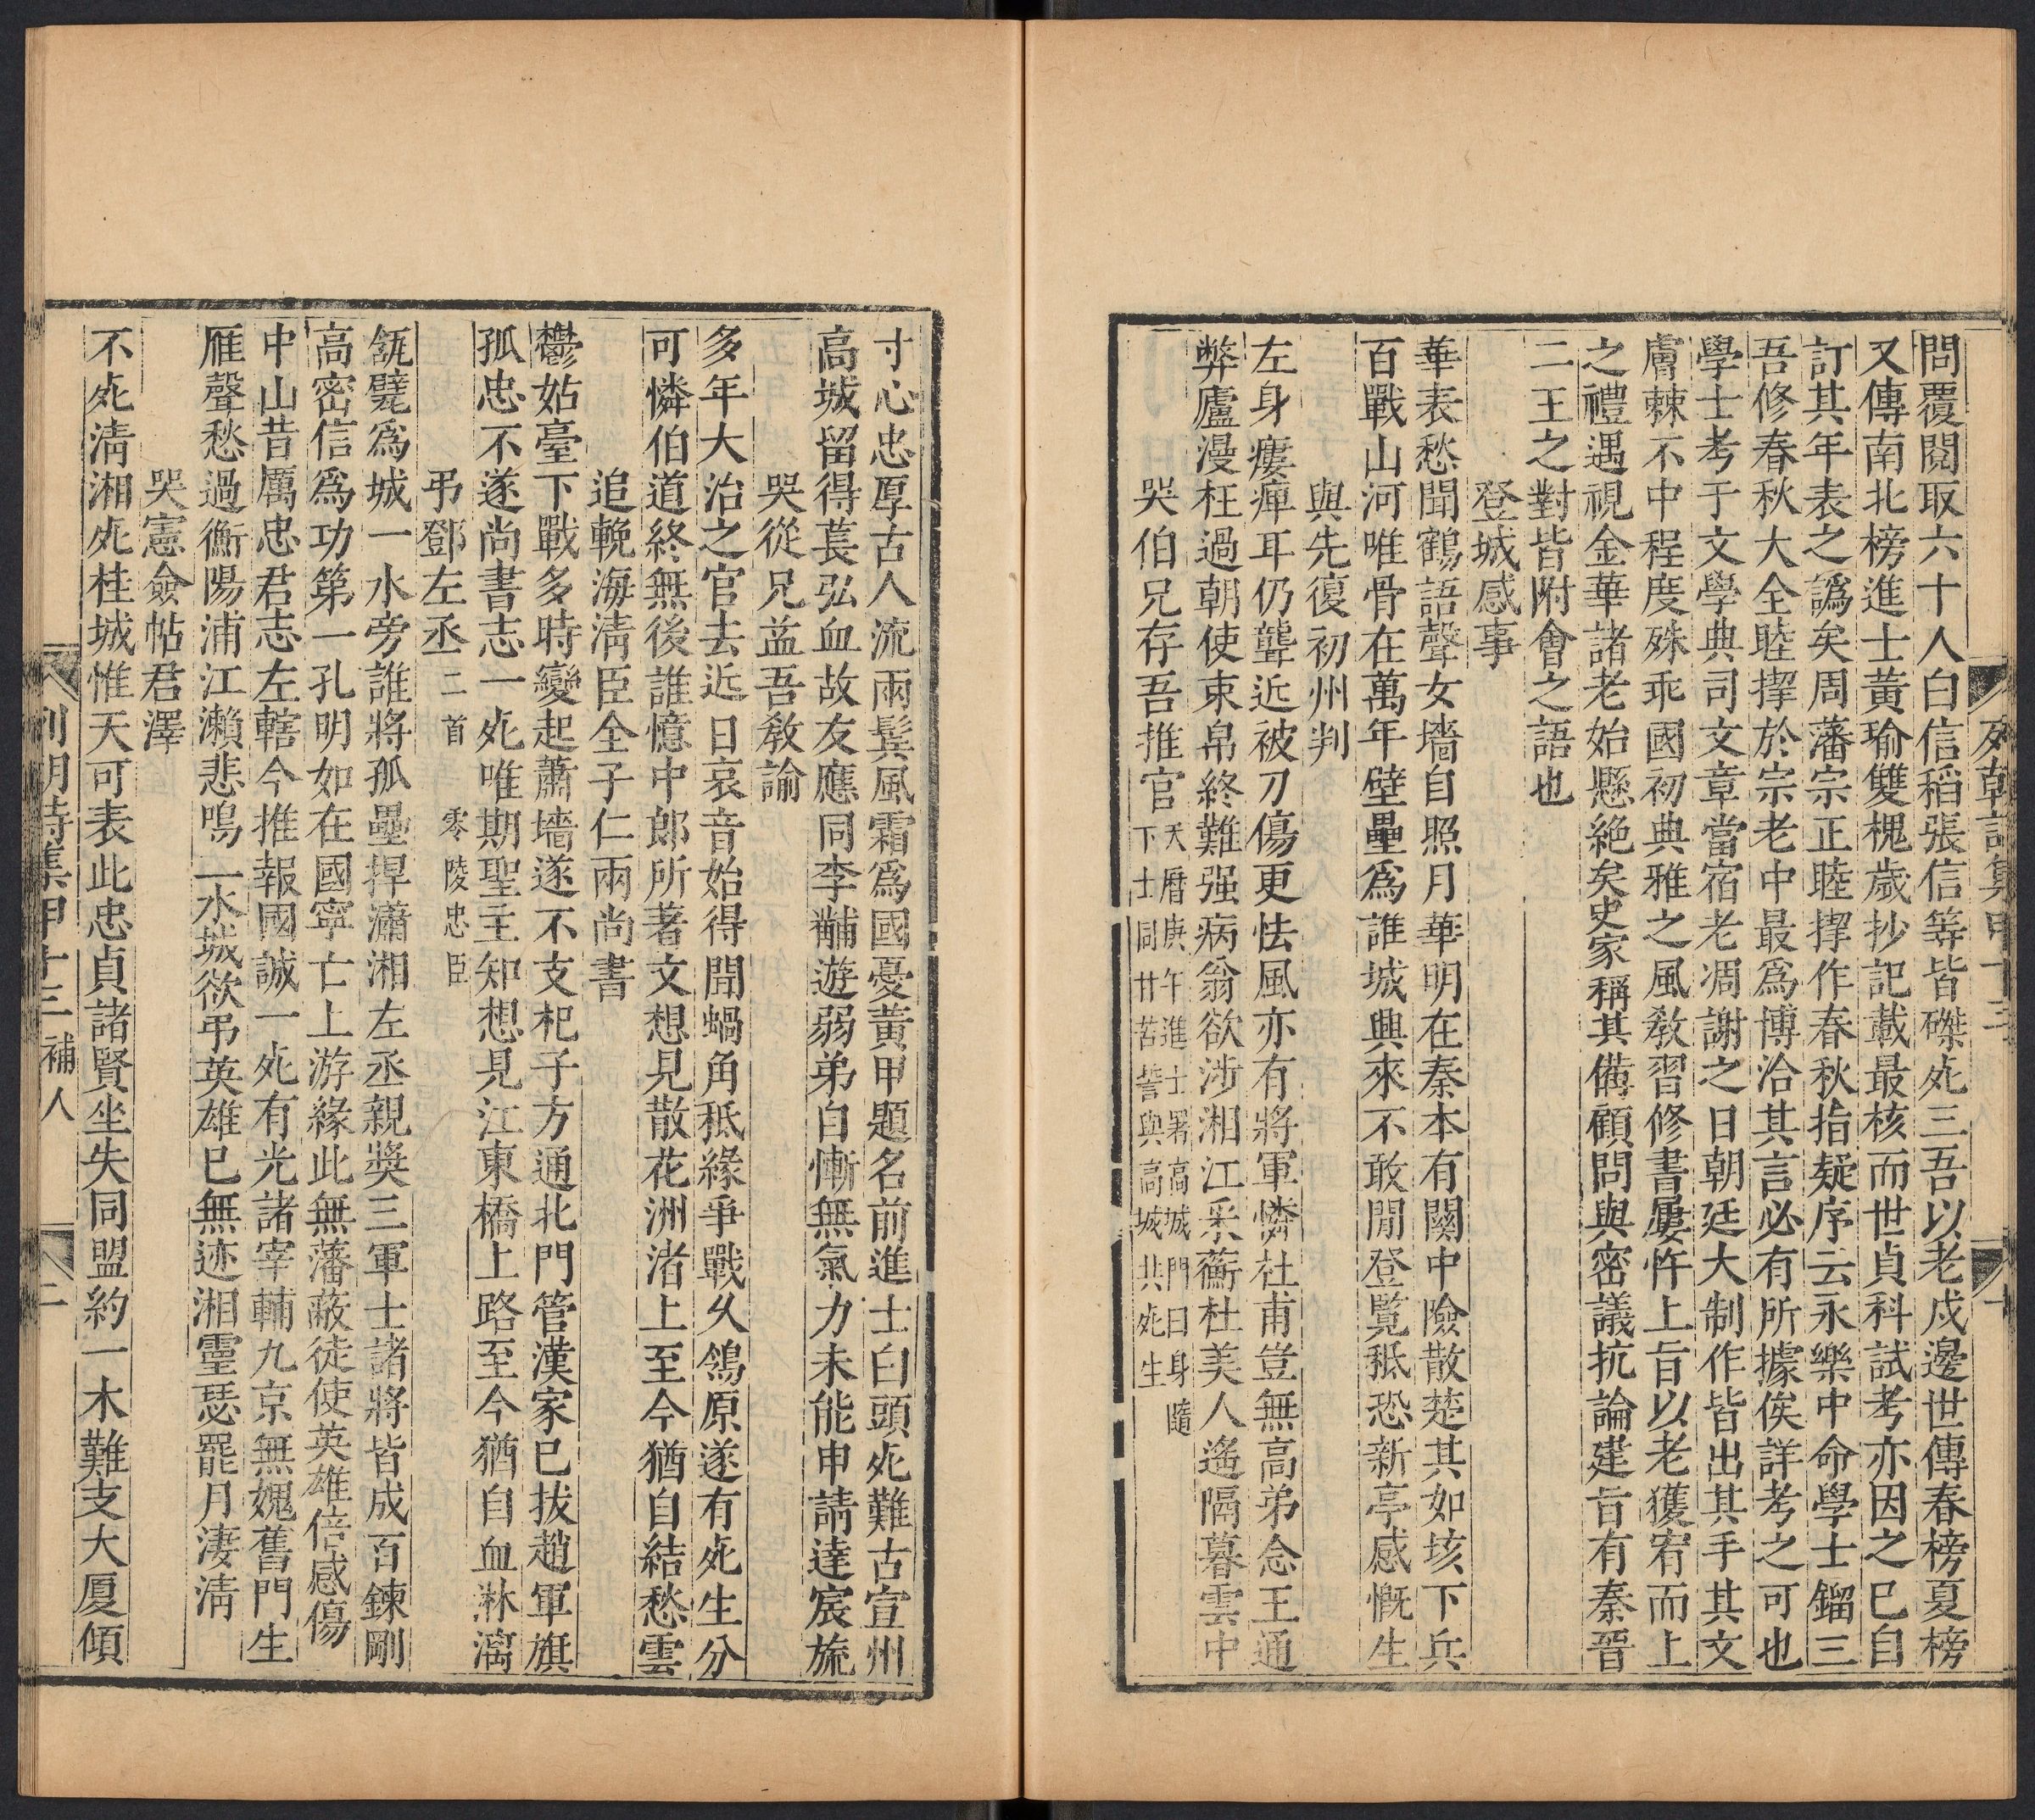 問覆閱取六十人白信稻張信等皆磔死三吾以老戍邊世傳春榜夏榜
又傳南北榜進士黃瑜雙槐歲抄記載最核而世貞科試考亦因之已自
訂其年表之譌矣周藩宗正睦㮮作春秋指疑序云永樂中命學士鎦三
吾修春秋大全睦㮮於宗老中最爲博洽其言必有所據俟詳考之可也
學士考于文學典司文章當宿老凋謝之日朝廷大制作皆出其手其文
膚棘不中程度殊乖國初典雅之風敎習修書屢忤上旨以老獲宥而上
之禮遇視金華諸老始懸絕矣史家稱其備顧問與密議抗論建言有秦晉
二王之對皆附會之語也
登城感事
華表愁聞鶴語聲女墻自照月華明在秦本有關中險散楚其如垓下兵
百戰山河唯骨在萬年壁壘爲誰城興來不敢閒登覽秪恐新亭感慨生
與先復初州判
左身瘻痺耳仍聾近被刀傷更怯風亦有將軍憐社甫豈無高弟念王通
弊廬漫枉過朝使束帛終難强病翁欲涉湘江采蘅杜美人遙隔暮雲中
哭伯兄存吾推官天曆庚午進士署高城門曰身隨
下士同廿苦誓與高城共死生
寸心忠厚古人流兩鬂風霜爲國憂黃甲題名前進士白頭死難古宣州
高城留得萇弘血故友應同李黼遊弱弟自慚無氣力未能申請達宸旒
哭從兄孟吾敎諭
多年大治之官去近日哀音始得聞蝸角秪緣爭戰久鴒原遂有死生分
可憐伯道終無後誰憶中郞所著文想見散花洲渚上至今猶自結愁雲
追輓海淸臣全子仁兩尚書
鬱姑臺下戰多時變起蕭墻遂不支杞子方通北門管漢家已拔趙軍旗
孤忠不遂尚書志一死唯期聖主知想見江東橋上路至今猶自血淋漓
弔鄧左丞二首 零陵忠臣
瓴甓爲城一水旁誰將孤壘捍瀟湘左丞親獎三軍士諸將皆成百鍊剛
高密信爲功第一孔明如在國寧亡上游緣此無藩蔽徒使英雄倍感傷
中山昔厲忠君志左轄今推報國誠一死有光諸宰輔九京無媿舊門生
雁聲愁過衡陽浦江瀨悲鳴二水城欲弔英雄已無迹湘靈瑟罷月淒淸
哭憲僉帖君澤
不死淸湘死桂城惟天可表此忠貞諸賢坐失同盟約一木難支大厦傾